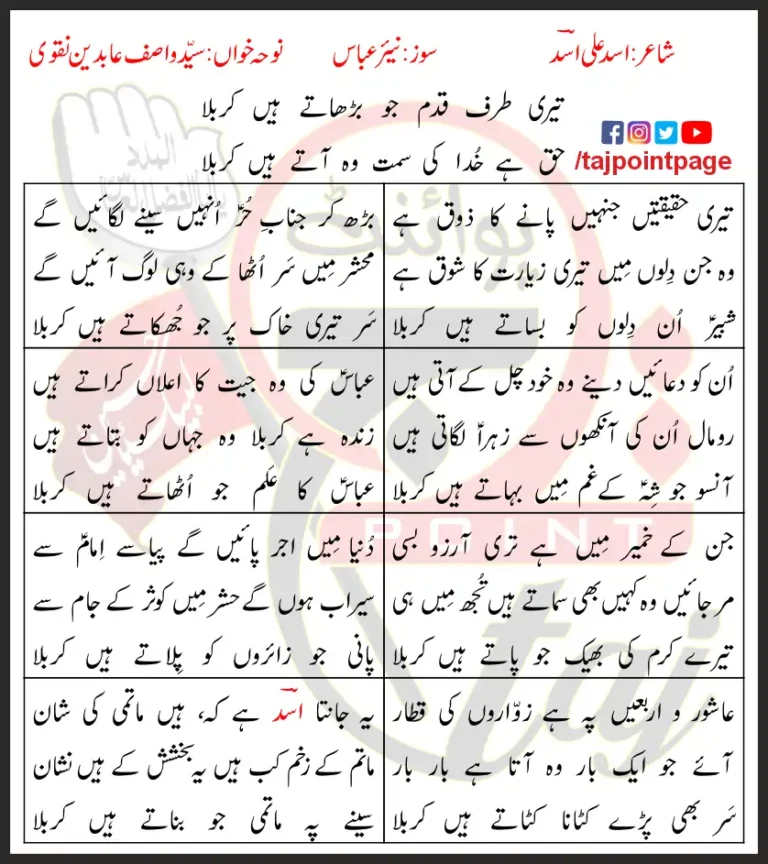 شاعر: اسد علی اسدؔ
سوز: نیّر عباس
نوحہ خواں: سیّد واصف عابدین نقوی
تیری طرف قدم جو بڑھاتے ہیں کربلا
حق ہے خُدا کی سمت وہ آتے ہیں کربلا
/tajpointpage
تیری حقیقتیں جنہیں پانے کا ذوق ہے
وہ جن دِلوں مِیں تیری زیارت کا شوق ہے
شبیرؑ اُن دِلوں کو بساتے ہیں کربلا
بڑھ کر جنابِ حُرؑ اُنہیں سینے لگائیں گے
محشر مِیں سَر اُٹھا کے وہی لوگ آئیں گے
سَر تیری خاک پر جو جُھکاتے ہیں کربلا
اُن کو دعائیں دینے وہ خود چل کے آتی ہیں
رومال اُن کی آنکھوں سے زہراؑ لگاتی ہیں
آنسو جو شِہؑ کے غم مِیں بہاتے ہیں کربلا
عباسؑ کی وہ جیت کا اعلاں کراتے ہیں
زندہ ہے کربلا وہ جہاں کو بتاتے ہیں
عباسؑ کا علم جو اُٹھاتے ہیں کربلا
جن کے خمیر مِیں ہے تری آرزو بسی
مر جائیں وہ کہیں بھی سماتے ہیں تُجھ مِیں ہی
تیرے کرم کی بھیک جو پاتے ہیں کربلا
دُنیا مِیں اجر پائیں گے پیاسے اِمامؑ سے
سیراب ہوں گے حشر مِیں کوثر کے جام سے
پانی جو زائروں کو پِلاتے ہیں کربلا
عاشور و اربعیں پہ ہے زوّاروں کی قطار
آئے جو ایک بار وہ آتا ہے بار بار
سَر بھی پڑے کٹانا کٹاتے ہیں کربلا
یہ جانتا اسدؔ ہے کہ، ہیں ماتمی کی شان
ماتم کے زخم کب ہیں یہ بخشش کے ہیں نشان
سینے پہ ماتمی جو بناتے ہیں کربلا
پوائنٹ
POINT
taj